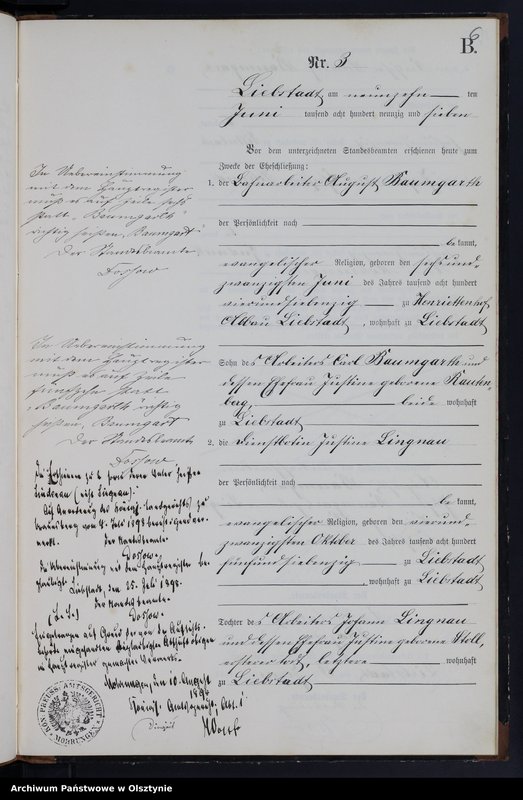 B.
6
Nr. 3
Liebstadt, am neunzehn ten
Juni tausend acht hundert neunzig und sieben
Vor dem unterzeichneten Standesbeamten erschienen heute zum
Zwecke der Eheschließung:
1. der Bahnarbeiter August Baumgarth
der Persönlichkeit nach
be kannt,
evangelischer Religion, geboren den sechsund-
zwanzigsten Juni des Jahres tausend acht hundert
vierundsiebenzig zu Henriettenhof
Abbau Liebstadt, wohnhaft zu Liebstadt
Sohn des Arbeiters Carl Baumgarth und
dessen Ehefrau Justine geborene Rauten
berg, beide wohnhaft
zu Liebstadt
2. die Dienstbotin Justine Lingnau
der Persönlichkeit nach
be kannt,
evangelischer Religion, geboren den vierund-
zwanzigsten Oktober des Jahres tausend acht hundert
fünfundsiebenzig zu Liebstadt
, wohnhaft zu Liebstadt
Tochter des Arbeiters Johann Lingnau
und dessen Ehefrau Justine geborene Stoll,
ersterer tot, letztere wohnhaft
zu Liebstadt
In Uebereinstimmung
mit dem Hauptregister
muß es auf Zeile sechs
statt "Baumgarth"
richtig heißen "Baumgart"
Der Standesbeamte
Tossow
In Uebereinstimmung
mit dem Hauptregister
muß es auf Zeile
fünfzehn statt
"Baumgarth" richtig
heißen "Baumgart"
Der Standesbeamte
Tossow
Die Erschienene zu 2
Lindenau (nicht Lingnau).
Auf Anordnung des Königl. Landgerichts zu
Braunsberg vom 4. Juli 1898
merkt. Der Standesbeamte.
Tossow.
Die Uebereinstimmung mit dem Hauptregister be-
glaubigt. Liebstadt, den 25. Juli 1898.
Der Standesbeamte.
(L. S.) Tossow.
Mohrungen, den 10. August
1898
Königl. Amtsgericht, Abt. 1
KÖN. PREUSS. AMTSGERICHT
* MOHRUNGEN *
Archiwum Państwowe w Olsztynie